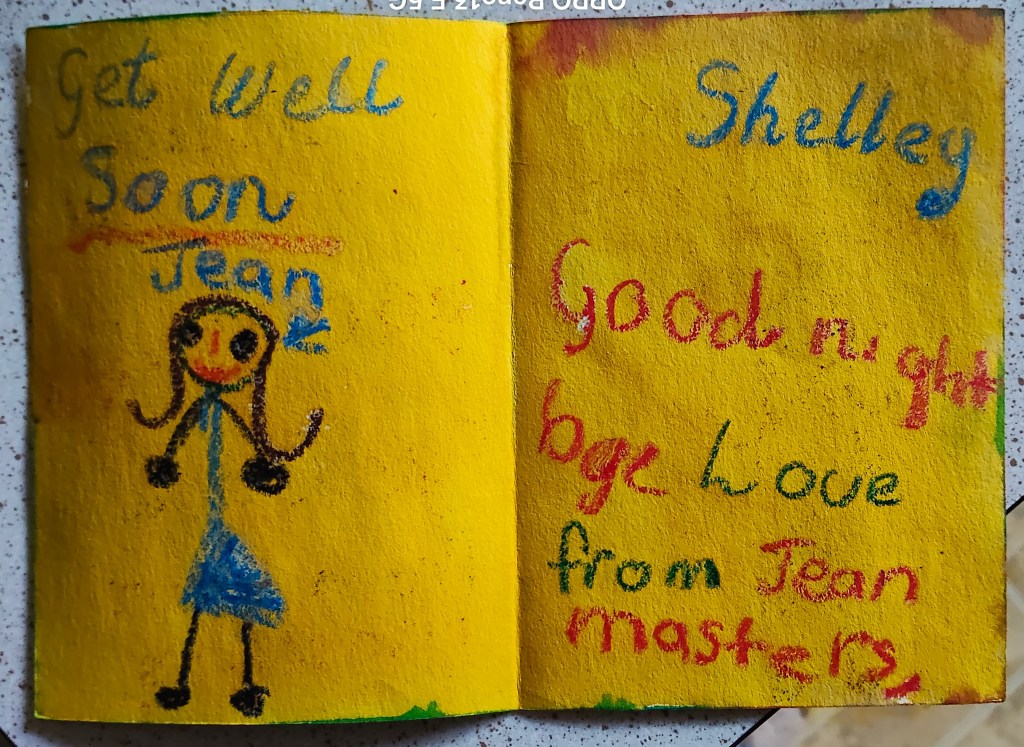 Get Well
Soon
Jean
Shelley
Good night
bye Love
from Jean
masters,